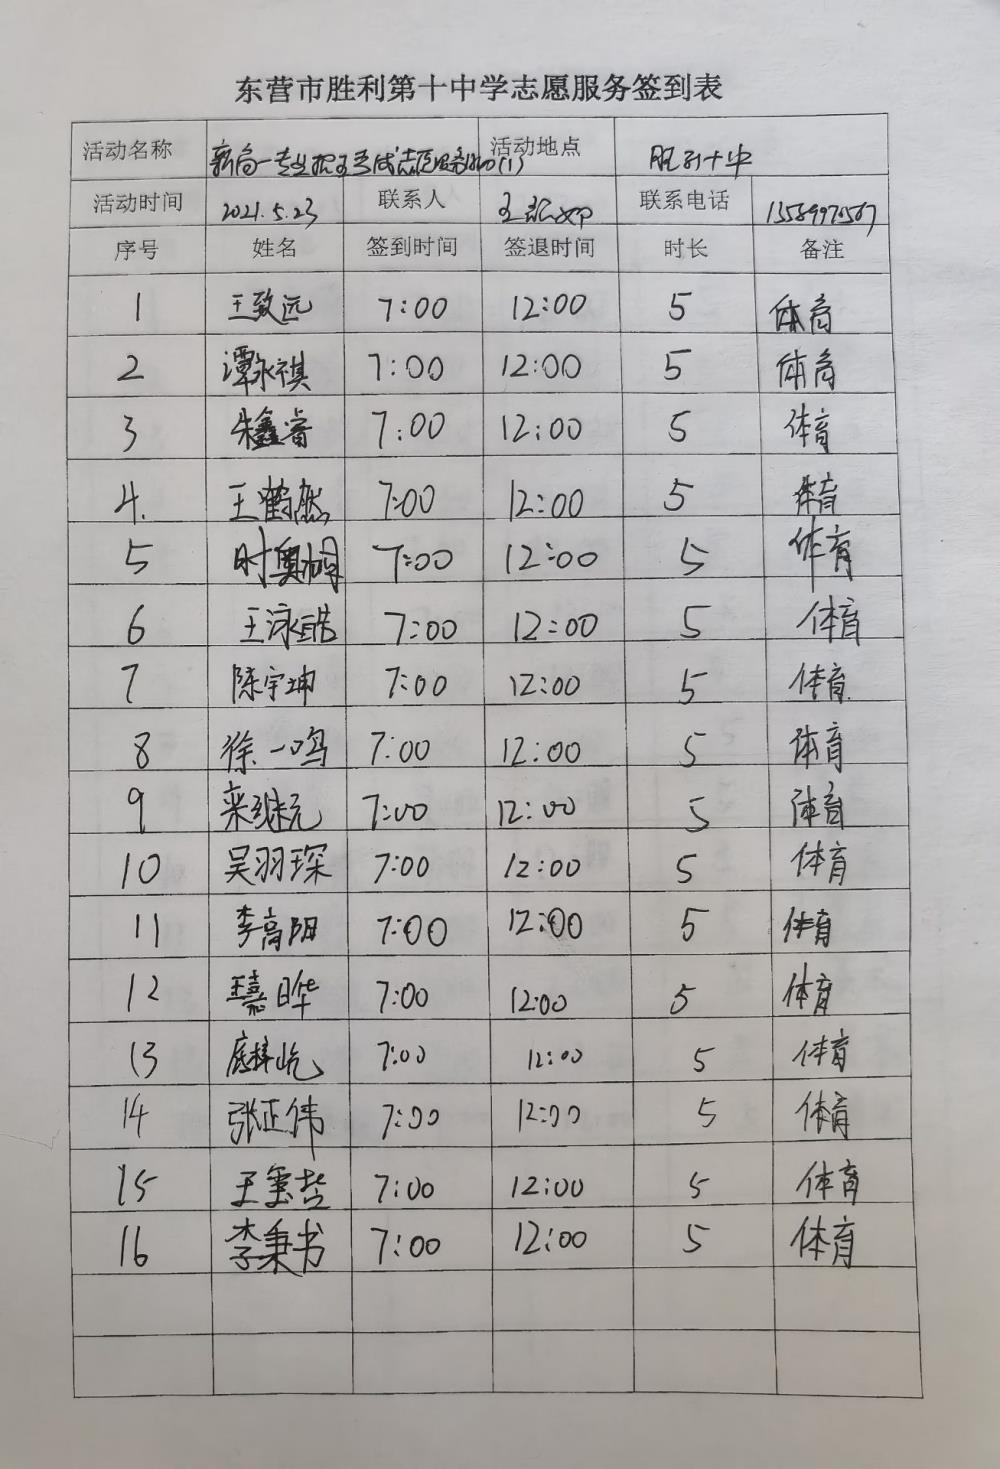 东营市胜利第十中学志愿服务签到表
活动名称 新高一专业 考试志愿服务活动(1) 活动地点 胜利十中
活动时间 2021.5.23 联系人 联系电话
序号 姓名 签到时间 签退时间 时长 备注
1 王致远 7:00 12:00 5 体育
2 谭永祺 7:00 12:00 5 体育
3 朱鑫睿 7:00 12:00 5 体育
4. 王鹤然 7:00 12:00 5 体育
5 时奥桐 7:00 12:00 5 体育
6 王泳皓 7:00 12:00 5 体育
7 陈宇坤 7:00 12:00 5 体育
8 徐一鸣 7:00 12:00 5 体育
9 栾继元 7:00 12:00 5 体育
10 吴羽琛 7:00 12:00 5 体育
11 李高阳 7:00 12:00 5 体育
12 王嘉晔 7:00 12:00 5 体育
13 7:00 12:00 5 体育
14 张正伟 7:00 12:00 5 体育
15 7:00 12:00 5 体育
16 李秉书 7:00 12:00 5 体育